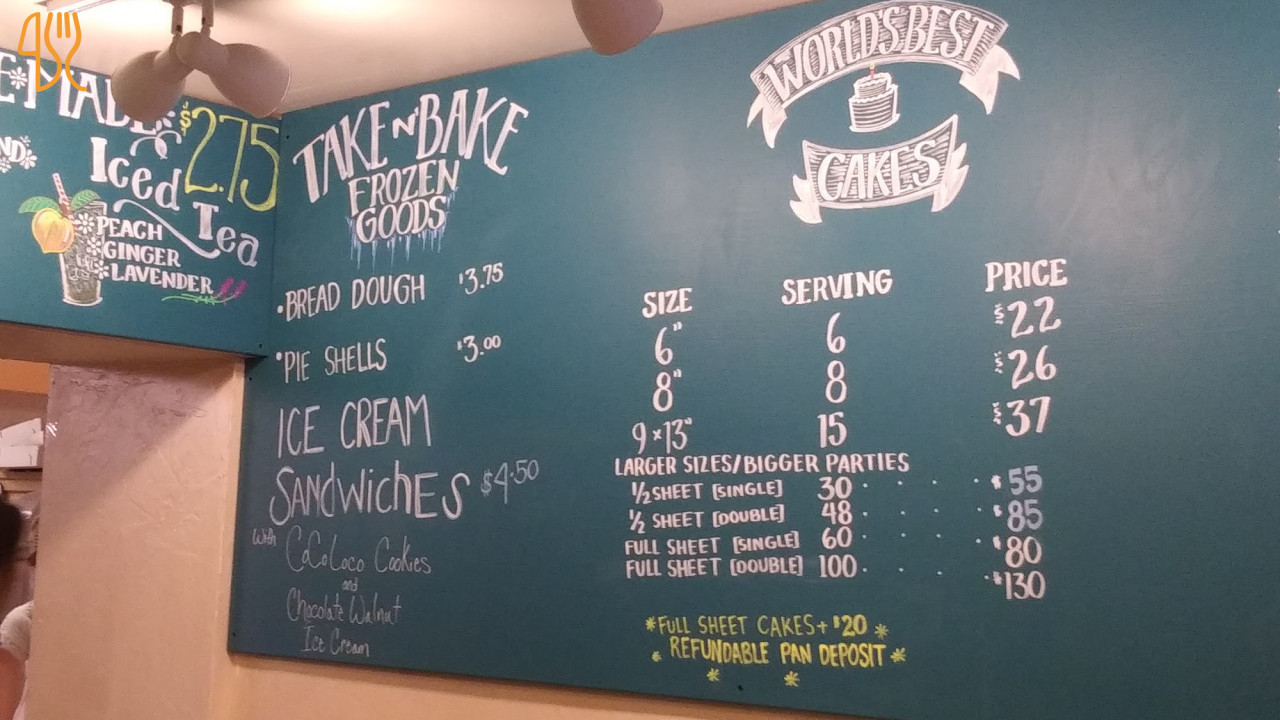 $2.75
Iced
Tea
PEACH
GINGER
LAVENDER
TAKE N' BAKE
FROZEN
GOODS
•BREAD DOUGH $3.75
•PIE SHELLS $3.00
ICE CREAM
SANdwichES $4.50
With
CoCoLoco Cookies
and
Chocolate Walnut
Ice Cream
WORLD'S BEST
CAKES
SIZE SERVING PRICE
6" 6 $22
8" 8 $26
9×13" 15 $37
LARGER SIZES/BIGGER PARTIES
½ SHEET [SINGLE] 30 . . . . $55
½ SHEET [DOUBLE] 48 . . . . $85
FULL SHEET [SINGLE] 60 . . . . $80
FULL SHEET [DOUBLE] 100 . . . . $130
*FULL SHEET CAKES + $20 *
* REFUNDABLE PAN DEPOSIT *
* *